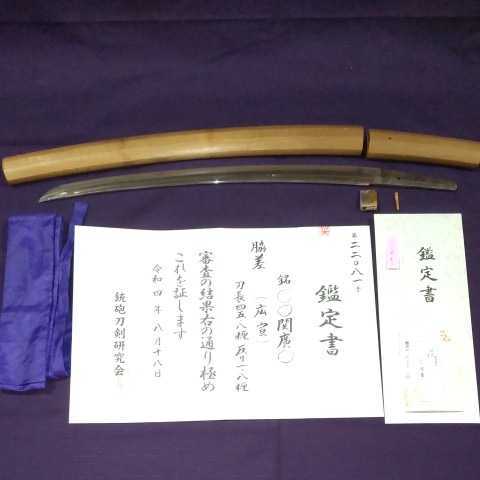 第二二〇八一号
鑑定書
銘〇〇関廣〇
(広宣)
脇差
刀長四五、八糎反り一、八糎
審査の結果右の通り極め
これを証します
令和四年八月十八日
銃砲刀剣研究会
鑑定書